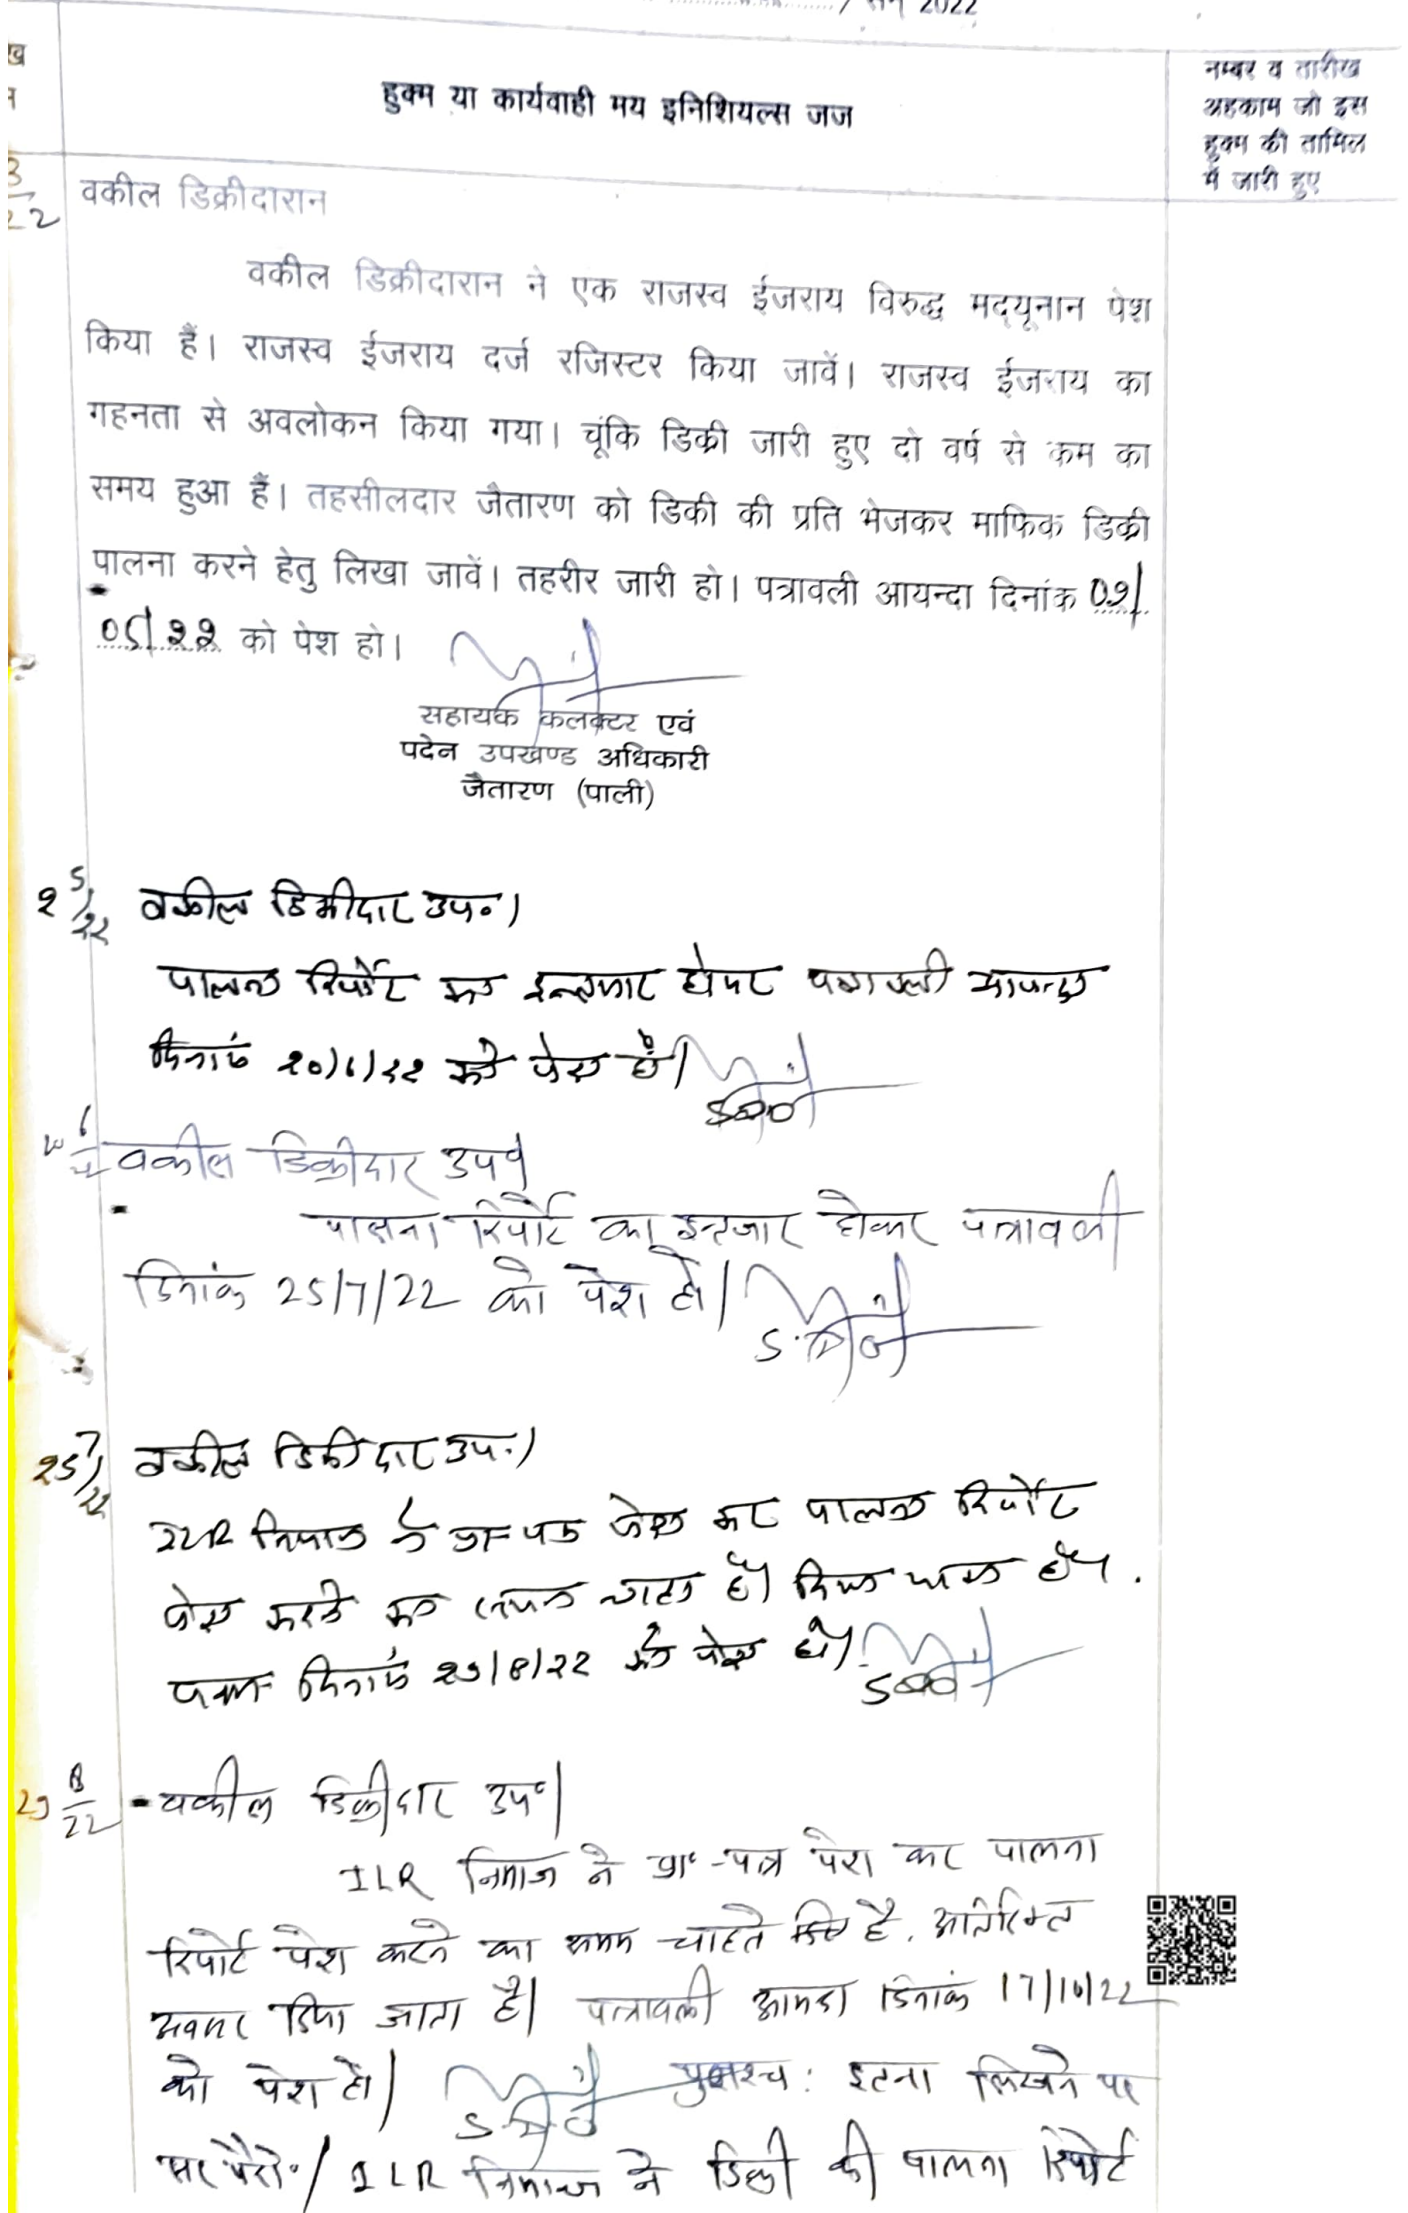 / सन् 2022
हुक्म या कार्यवाही मय इनिशियल्स जज
नम्बर व तारीख
अहकाम जो इस
हुक्म की तामिल
में जारी हुए
3
22
वकील डिक्रीदारान
वकील डिक्रीदारान ने एक राजस्व ईजराय विरुद्ध मद्यूनान पेश
किया हैं। राजस्व ईजराय दर्ज रजिस्टर किया जावें। राजस्व ईजराय का
गहनता से अवलोकन किया गया। चूंकि डिक्री जारी हुए दो वर्ष से कम का
समय हुआ हैं। तहसीलदार जैतारण को डिकी की प्रति भेजकर माफिक डिक्री
पालना करने हेतु लिखा जावें। तहरीर जारी हो। पत्रावली आयन्दा दिनांक 02/
05/22 को पेश हो।
सहायक कलक्टर एवं
पदेन उपखण्ड अधिकारी
जैतारण (पाली)
2 5/22 वकील डिक्रीदार उप०।
पालना रिपोर्ट का इन्तजार होकर पत्रावली आयन्दा
दिनांक 20/6/22 को पेश हो।
SDO
20 6/22 वकील डिक्रीदार उप०
पालना रिपोर्ट का इन्तजार होकर पत्रावली
दिनांक 25/7/22 को पेश हो।
S.D.O
25 7/22 वकील डिक्रीदार उप०।
ILR निमाज ने प्रा-पत्र पेश कर पालना रिपोर्ट
पेश करने का समय चाहा है। दिया जाता है।
दिनांक 29/8/22 को पेश हो।
SDO
29 8/22 वकील डिक्रीदार उप०।
ILR निमाज ने प्रा०-पत्र पेश कर पालना
रिपोर्ट पेश करने का समय चाहते है, अतिरिक्त
अवसर दिया जाता है। पत्रावली आयन्दा दिनांक 17/10/22
को पेश हो। पुनश्च: इतना लिखने पर
S.D.O
ILR निमाज ने डिक्री की पालना रिपोर्ट